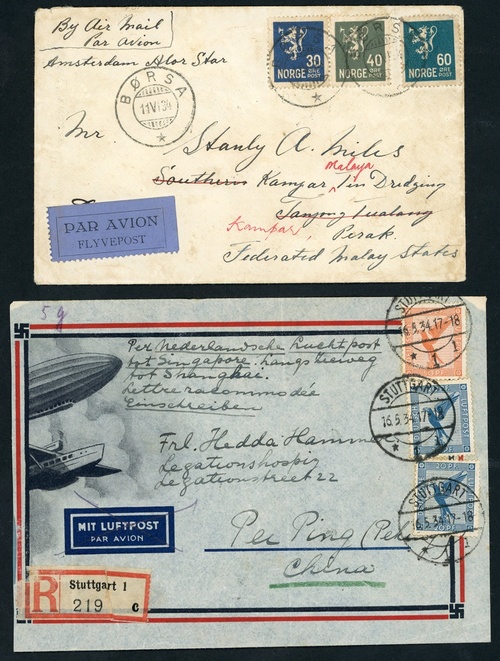 By Air Mail
Par Avion
Amsterdam Alor Star
BØRSA
11 VI 34
30
ØRE
POST
NORGE
40
ØRE
POST
NORGE
60
ØRE
POST
NORGE
Mr Stanly A. Miles
Malaya
Southern Kampar Tin Dredging
Tanjong Tualang
Kampar,
Perak.
Federated Malay States
PAR AVION
FLYVEPOST
5 g
Per Nederlandsche Luchtpost
tot Singapore. Langs zeeweg
tot Shanghai.
Lettre racommodée
Einschreiben
Frl. Hedda Hamm
Legationshospiz
Legationstreet 22
Pei Ping (Pe
China
MIT LUFTPOST
PAR AVION
R
Stuttgart 1
219 c
STUTTGART
16.5.34.17-18
1
STUTTGART
16.5.34.17-18
LUFTPOST
STUTTGART
6.5.34.17-18
20 PF